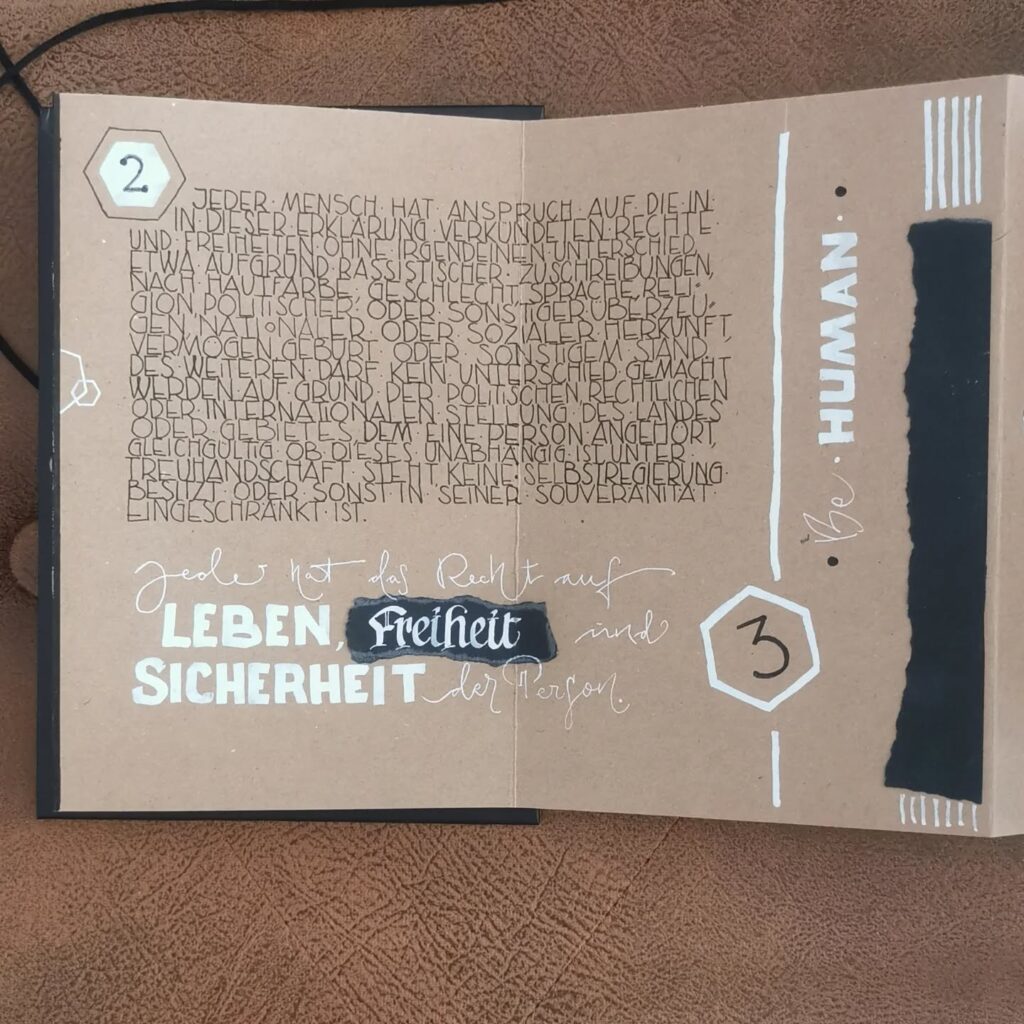 2
JEDER · MENSCH · HAT ANSPRUCH AUF DIE · IN ·
IN · DIESER · ERKLÄRUNG · VERKÜNDETEN · RECHTE ·
UND · FREIHEITEN · OHNE · IRGENDEINEN · UNTERSCHIED,
ETWA · AUFGRUND · RASSISTISCHER · ZUSCHREIBUNGEN,
NACH · HAUTFARBE, GESCHLECHT · SPRACHE · RELI-
GION, POLITISCHER, ODER · SONSTIGER ÜBERZEU-
GEN, NATIONALER · ODER · SOZIALER · HERKUNFT,
VERMÖGEN, GEBURT · ODER · SONSTIGEM · STAND ·
DES · WEITEREN · DARF · KEIN · UNTERSCHIED · GEMACHT
WERDEN · AUF · GRUND · DER · POLITISCHEN · RECHTLICHEN
ODER · INTERNATIONALEN · STELLUNG · DES · LANDES
ODER · GEBIETES, DEM · EINE · PERSON · ANGEHÖRT,
GLEICHGÜLTIG · OB · DIESES · UNABHÄNGIG · IST · UNTER ·
TREUHANDSCHAFT · STEHT · KEINE · SELBSTREGIERUNG ·
BESITZT · ODER · SONST · IN · SEINER · SOUVERÄNITÄT
EINGESCHRÄNKT · IST.
Jeder hat das Recht auf
LEBEN, Freiheit und
SICHERHEIT der Person.
3
• Be · HUMAN · •